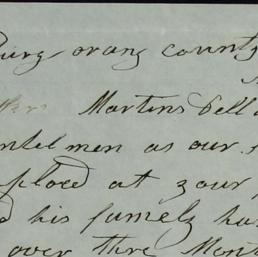 orang county
Martins Fell
ntelmen as our
place at your
his famely ha
over thre Mont